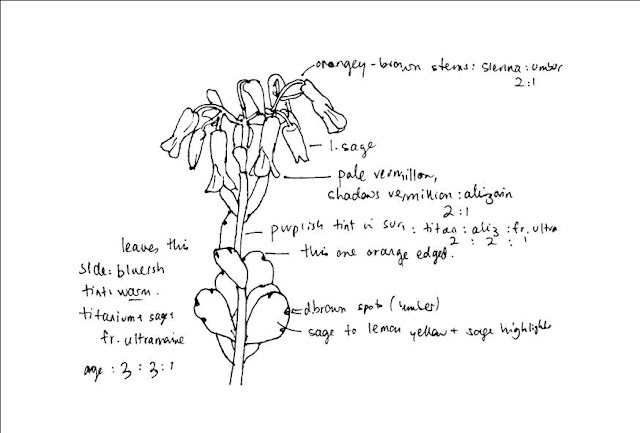 orangey-brown stems: sienna:umber
2:1
l. sage
pale vermillon,
shadows vermillion:alizarin
2:1
purplish tint in sun: titan:aliz:fr.ultra
2 : 2 : 1
this one orange edged.
leaves this
side: blueish
tint: warm.
titanium + sage
fr. ultramaine
3 : 3 : 1
dbrown spots (umber)
sage to lemon yellow + sage highlights